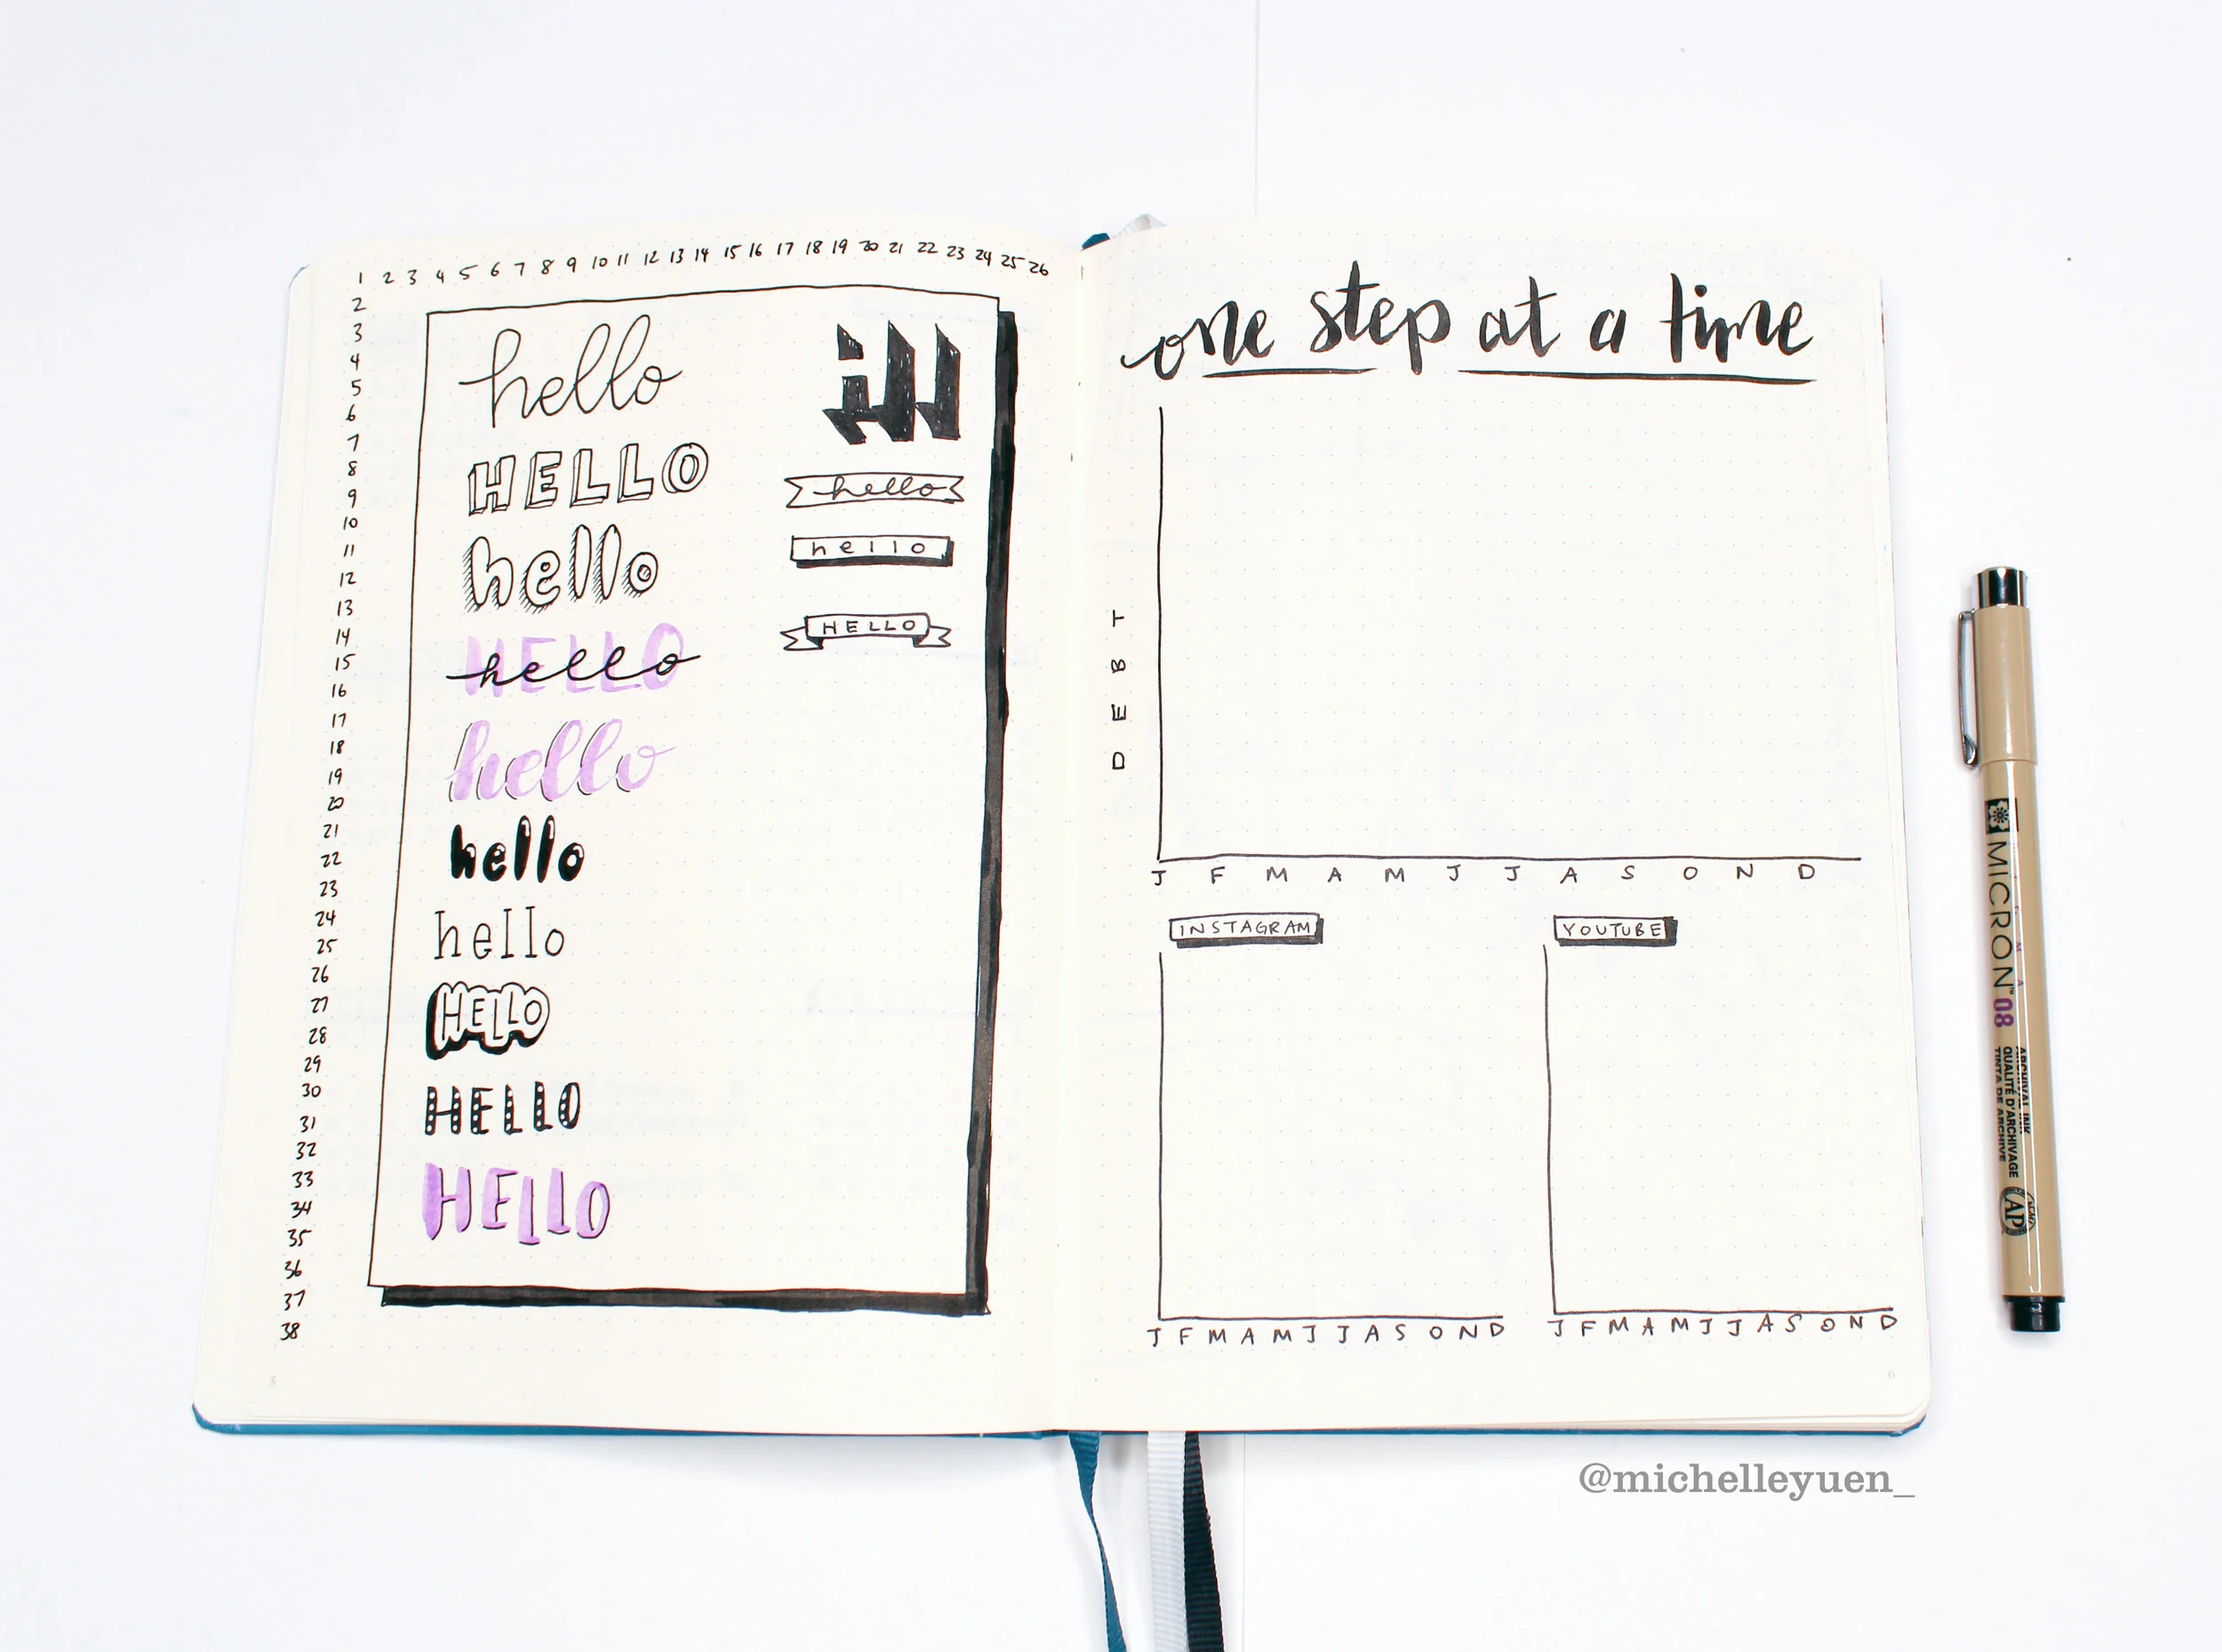 1 2 3 4 5 6 7 8 9 10 11 12 13 14 15 16 17 18 19 20 21 22 23 24 25 26
2
3
4
5
6
7
8
9
10
11
12
13
14
15
16
17
18
19
20
21
22
23
24
25
26
27
28
29
30
31
32
33
34
35
36
37
38
hello
HELLO
hello
HELLO
hello
hello
hello
hello
HELLO
HELLO
HELLO
hello
hello
HELLO
5
one step at a time
DEBT
J F M A M J J A S O N D
INSTAGRAM
J F M A M J J A S O N D
YOUTUBE
J F M A M J J A S O N D
6
MICRON™ 08
ARCHIVAL INK
QUALITÉ D'ARCHIVAGE
TINTA DE ARCHIVE
AP
@michelleyuen_